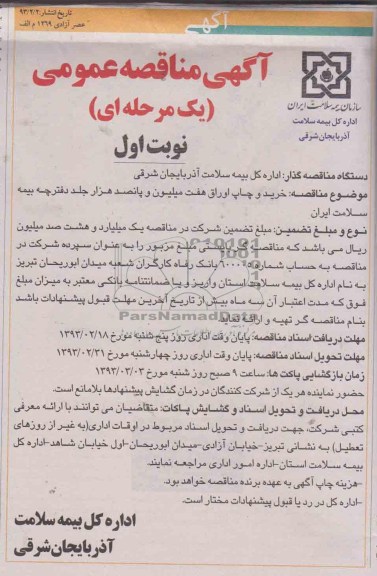 آگهی
تاریخ انتشار: ۹۳/۲/۲
عصر آزادی ۱۳۶۹ م الف
آگهی مناقصه عمومی
(یک مرحله ای)
نوبت اول
سازمان بیمه سلامت ایران
اداره کل بیمه سلامت
آذربایجان شرقی
دستگاه مناقصه گذار: اداره کل بیمه سلامت آذربایجان شرقی
موضوع مناقصه: خرید و چاپ اوراق هفت میلیون و پانصد هزار جلد دفترچه بیمه
سلامت ایران
نوع و مبلغ تضمین: مبلغ تضمین شرکت در مناقصه یک میلیارد و هشت صد میلیون
ریال می باشد که مناقصه مبلغ مزبور را به عنوان سپرده شرکت در
مناقصه به حساب شماره بانک رفاه کارگران شعبه میدان ابوریحان تبریز
به نام اداره کل بیمه سلامت استان واریز و یا ضمانتنامه بانکی معتبر به میزان مبلغ
فوق که مدت اعتبار آن سه ماه پیش از تاریخ آخرین مهلت قبول پیشنهادات باشد
بنام مناقصه گر تهیه و ارائه نماید.
ParsNamadData
مهلت دریافت اسناد مناقصه: پایان وقت اداری روز پنج شنبه مورخ ۱۳۹۳/۰۲/۱۸
مهلت تحویل اسناد مناقصه: پایان وقت اداری روز چهارشنبه مورخ ۱۳۹۳/۰۲/۳۱
زمان بازگشایی پاکت ها: ساعت ۹ صبح روز شنبه مورخ ۱۳۹۳/۰۳/۰۳
حضور نماینده هر یک از شرکت کنندگان در زمان گشایش پیشنهادها بلامانع است.
محل دریافت و تحویل اسناد و گشایش پاکات: متقاضیان می توانند با ارائه معرفی
کتبی شرکت، جهت دریافت و تحویل اسناد مربوط در اوقات اداری(به غیر از روزهای
تعطیل) به نشانی تبریز-خیابان آزادی-میدان ابوریحان-اول خیابان شاهد-اداره کل
بیمه سلامت استان-اداره امور اداری مراجعه نمایند.
-هزینه چاپ آگهی به عهده برنده مناقصه خواهد بود.
-اداره کل در رد یا قبول پیشنهادات مختار است.
اداره کل بیمه سلامت
آذربایجان شرقی